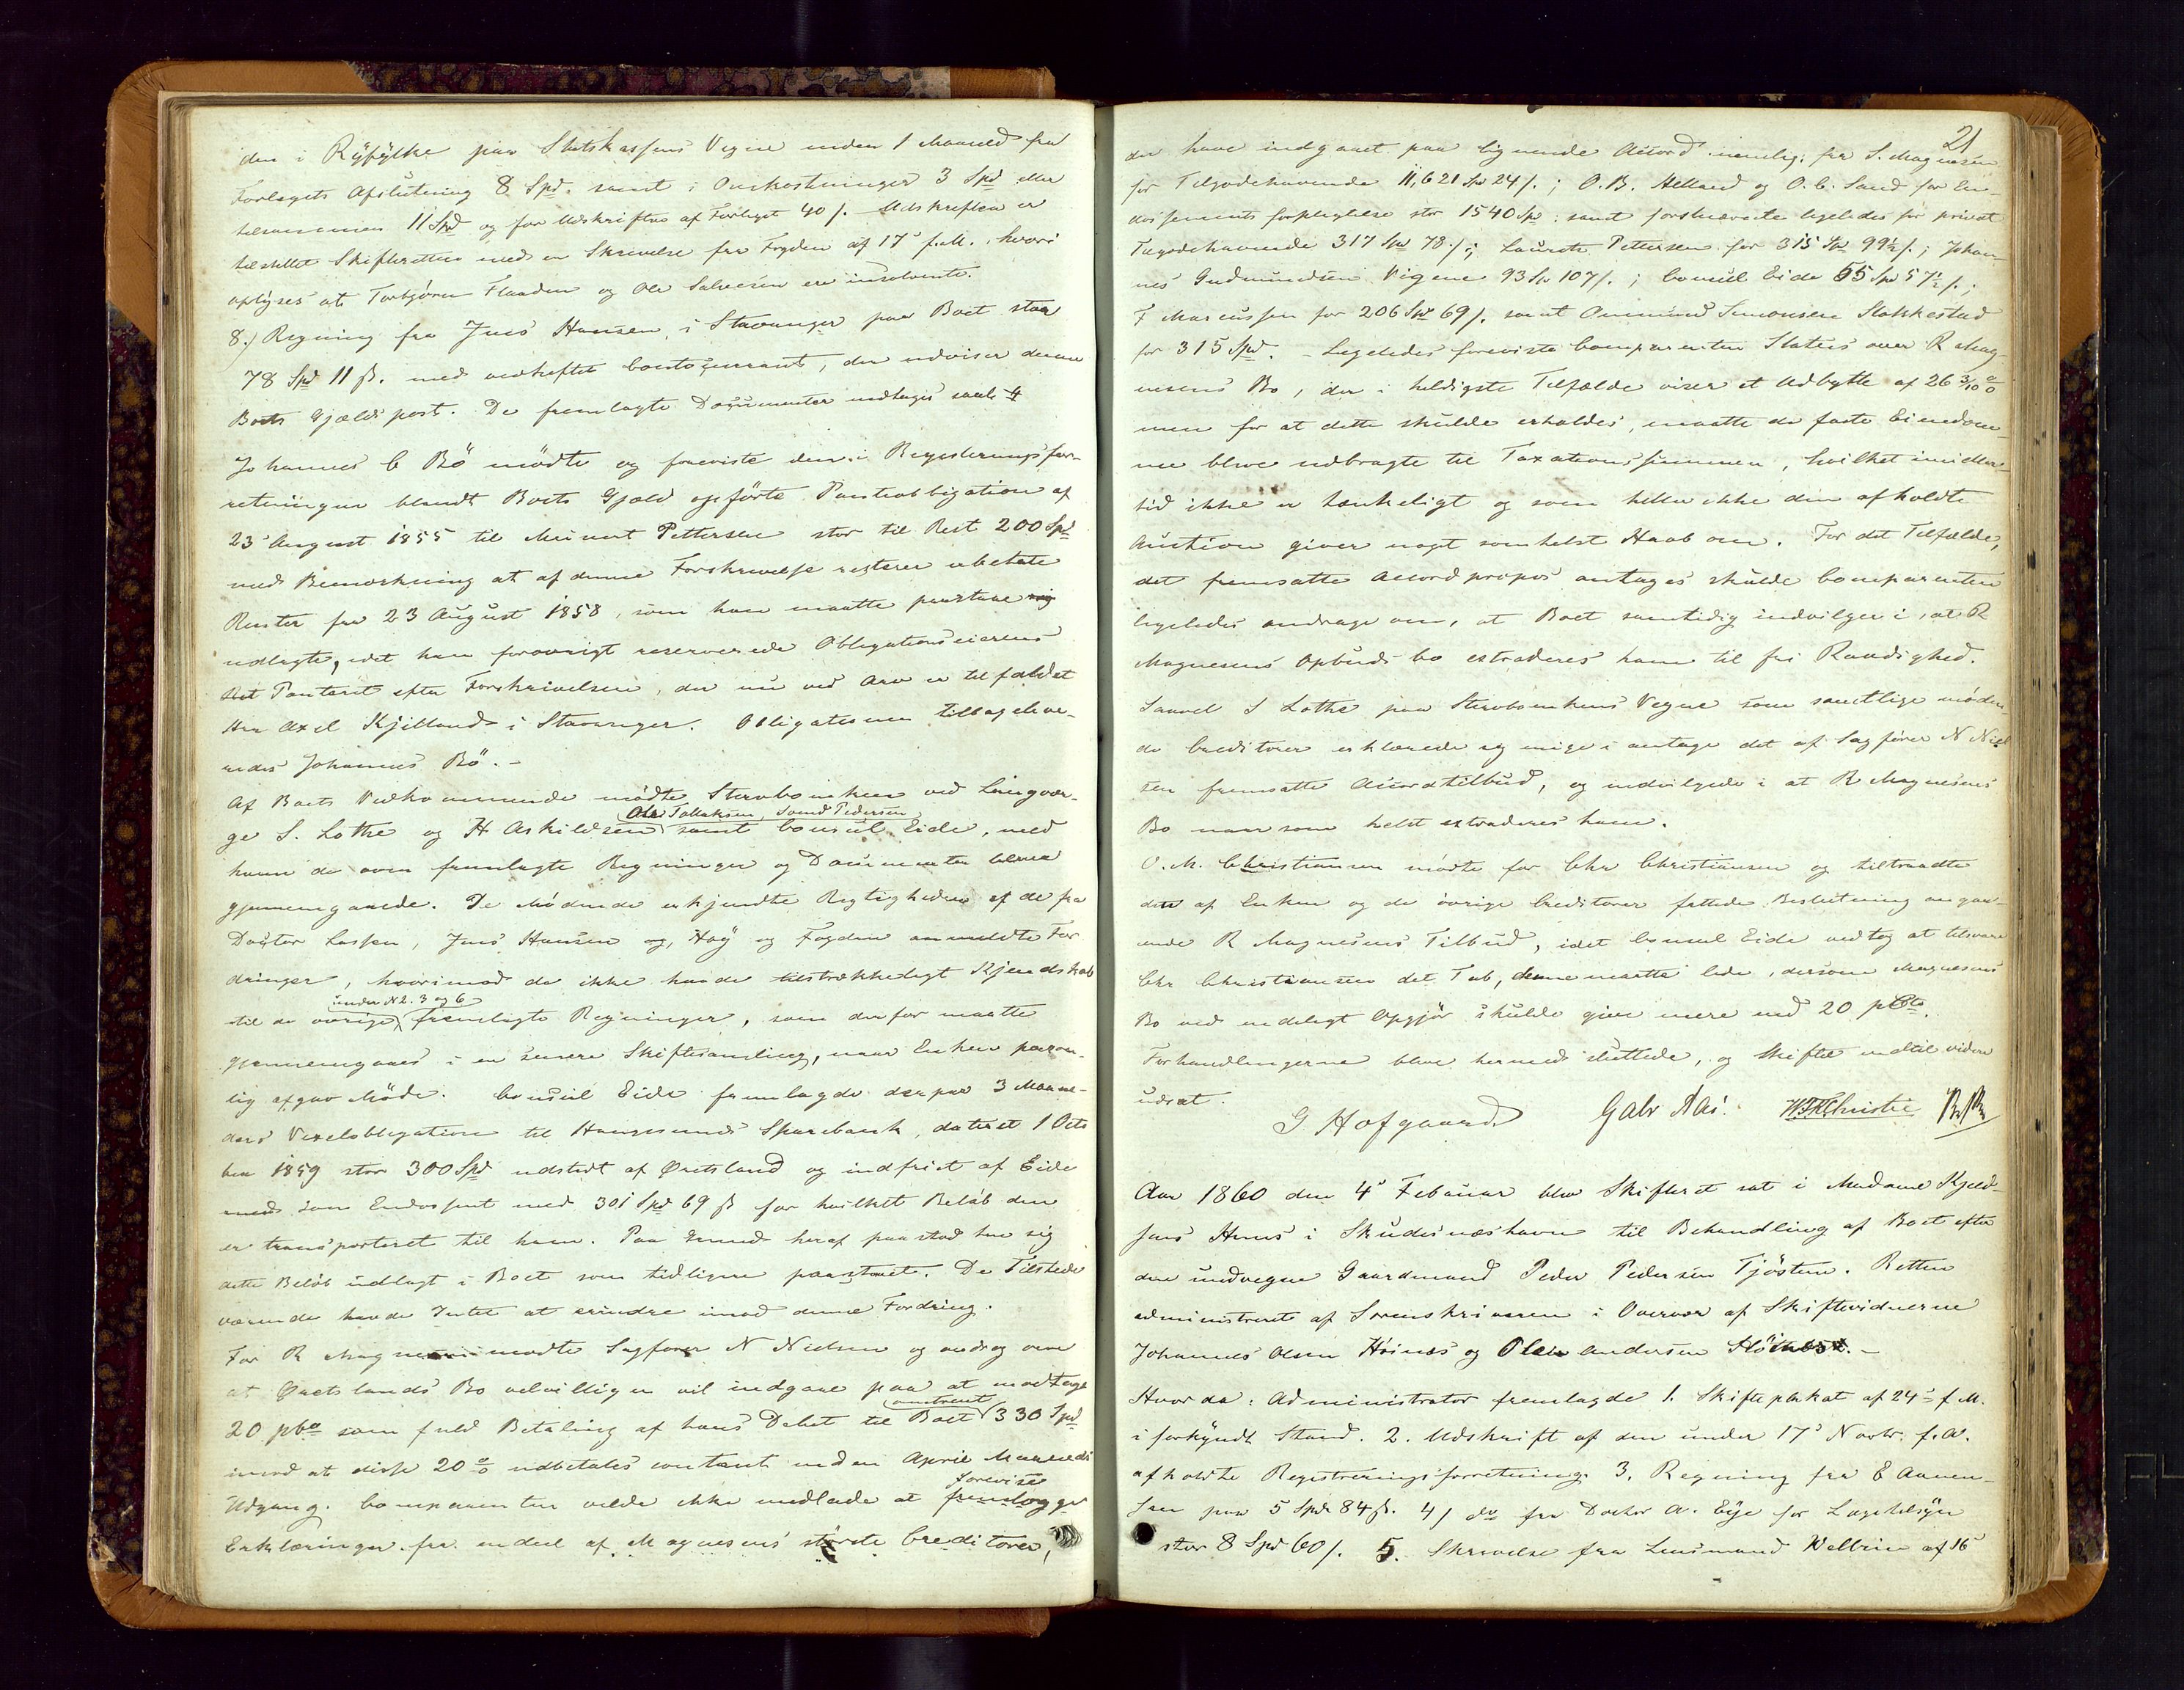 den i Ryfylke paa Statskassens Vegne inden 1 Maaned fra
Forligets Afslutning 8 Spd. samt i Omkostninger 3 Spd eller
tilsammen 11 Spd og for Udskriften af Forliget 40 /. Udskriften er
tilstillet Skifteretten med en Skrivelse fra Fogden af 17' f.M., hvori
oplyses at Torbjørn Flaaden og Ole Salvesen ere insolvente.
8.) Regning fra Jens Hansen i Stavanger paa Boet stor
78 Spd 11 ß. med vedheftet Contocurrant, der udviser denne
Boets Gjældspost. De fremlagte Documenter indtages saal. #
Johannes C Bö mödte og foreviste den i Registreringsfor-
retningen blandt Boets Gjæld opførte Pantobligation af
23' August 1855 til Meinert Pettersen stor til Rest 200 Spd
med Bemærkning at af denne Forskrivelse resterer ubetalte
Renter fra 23 August 1858, som han maatte paastaae sig
udlagte, idet han forøvrigt reserverede Obligationseierens
Ret Panteret efter Forskrivelsen, der nu ved Arv er tilfaldet
Hr Axel Kjelland i Stavanger. Obligationen tilbagelever-
edes Johannes Bö. -
Af Boets Vedkommende mödte Stervboenken ved Laugvær-
Ole Tollaksen, Svend Pedersen
ge S. Lothe og H Askildsen samt Consul Eide, med
hvem de oven fremlagte Regninger og Documenter bleve
gjennemgaaede. De Mödende erkjendte Rigtigheden af de fra
Doctor Lassen, Jens Hansen og, Høy og Fogden anmeldte For
dringer, hvorimod de ikke havde tilstrækkeligt Kjendskab
under N 2. 3 og 6
til de øvrige fremlagte Regninger, som derfor maatte
gjennemgaaes i en senere Skiftesamling, naar Enken person-
lig afgav Möde. Consul Eide fremlagde derpaa 3 Maane-
ders Vexelobligation til Haugesunds Sparebank, dateret 1 Octo
ber 1859 stor 300 Spd udstedt af Øretsland og indfriet af Eide
med som Endossent med 301 Spd 69 ß for hvilket Belöb den
er transporteret til ham. Paa Grund heraf paastod han sig
dette Belöb udlagt i Boet som tidligere paastaaet. De Tilstede
værende havde Intet at erindre imod denne Fordring.
For R Magnesen mødte Sagfører N Nielsen og androg om
at Øretslands Bo velvilligen vil indgaae paa at modtage
omtrent
20 pCto som fuld Betaling af hans Debet til Boet 330 Spd
imod at disse 20 % udbetales contant inden April Maaneds
foreviste
Udgang. Comparenten vilde ikke undlade at fremlægge
Erklæringer fra endeel af Magnesens største Creditorer,
21
der have indgaaet paa lignende Accord nemlig: fra S. Magnesen
for Tilgodehavende 11,621 Spd 24 /.; O. B. Helland og O. C. Sand for En-
dossements forpligtelse stor 1540 Spd; samt forstnævnte ligeledes for privat
Tilgodehavende 317 Spd 78 /.; Laurits Pettersen for 315 Spd 99½ /.; Johan-
nes Gudmundsen Vigene 93 Sp 107 /.; Consul Eide 55 Spd 57½ /.;
F Marcussen for 206 Spd 69 /. samt Ommund Simonsen Stokkestad
for 315 Spd. - Ligeledes foreviste Comparenten Status over R Mag-
nesens Bo, der i heldigste Tilfælde viser et Udbytte af 26 3/10 %
men for at dette skulde erholdes, maatte de faste Eiendom-
me blive udbragte til Taxationssummen, hvilket imidler-
tid ikke er tænkeligt og som heller ikke den afholdte
Auction giver noget somhelst Haab om. For det Tilfælde,
det fremsatte Accordpropos antages skulde Comparenten
ligeledes andrage om, at Boet samtidig indvilger i, at R
Magnesens Opbudsbo extraderes ham til fri Raadighed.
Samvel S Lothe paa Stervboenkens Vegne som samtlige möden-
de Creditorer erklærede sig enige i antage det af Sagfører N Niel
sen fremsatte Accordtilbud, og indvilgede i at R Magnesens
Bo naarsom helst extraderes ham.
O. M. Christiansen mødte for Chr Christiansen og tiltraadte
den af Enken og de øvrige Creditorer fattede Beslutning angaa-
ende R Magnesens Tilbud, idet Consul Eide vedtog at tilsvare
Chr Christiansen det Tab, denne maatte lide, dersom Magnesens
Bo ved endeligt Opgjør skulde give mere end 20 pCto.
Forhandlingerne bleve hermed sluttede, og Skiftet indtil videre
udsat.
G Hofgaard Gabr Aas. WFKChristie
Aar 1860 den 4' Februar blev Skifteret sat i Madame Kjeld-
sens Huus i Skudesnæshavn til Behandling af Boet efter
den undvegne Gaardmand Peder Pedersen Tjösten. Retten
administreret af Sorenskriveren i Overvær af Skiftevidnerne
Johannes Olsen Höinæs og Olen Andersen Stöthest. -
Hvorda: Administrator fremlagde 1. Skifteplakat af 24' f.M.
i forkyndt Stand. 2. Udskrift af den under 17' Novbr. f.A.
afholdte Registreringsforretning. 3. Regning fra E Aanen-
sen paa 5 Spd 84 ß. 4/ do fra Doctor A. Eye for Lægetilsyn
stor 8 Spd 60 /. 5. Skrivelse fra Lensmand Wallrin af 16'